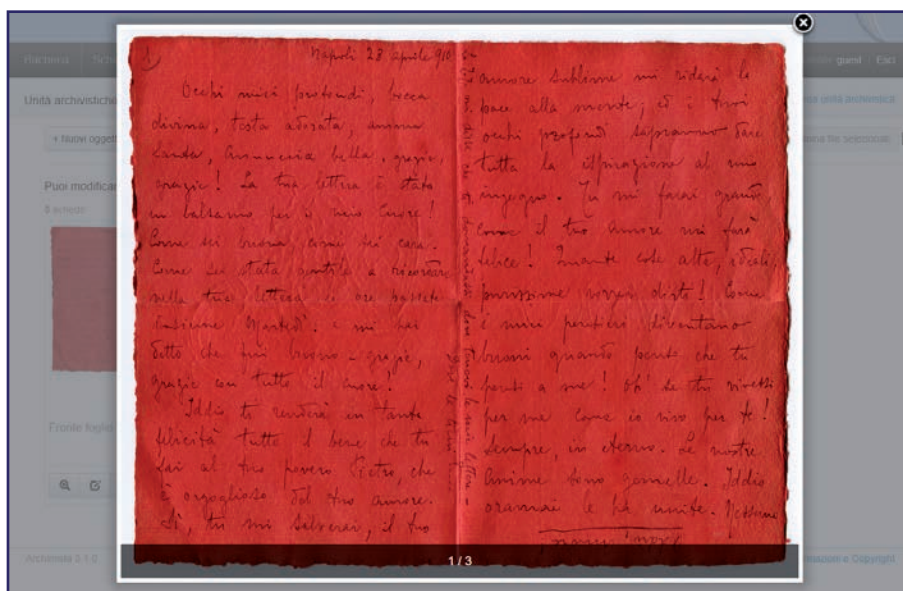 guest Esci
Unità archivistiche
unità archivistica
Nuovi
file selezionati
Puoi
Napoli 23 aprile 910
Occhi miei profondi, bocca
divina, testa adorata, anima
santa, bella, grazie,
grazie! La tua lettera è stata
un balsamo per il mio cuore!
Come sei buona come sei cara.
Come sei stata gentile a ricordare
nella tua lettera le ore passate
insieme Martedì. e mi hai
detto che fui buono - grazie,
grazie con tutto il cuore!
Iddio ti renderà in tanta
felicità tutto il bene che tu
fai al tuo povero Pietro, che
è orgoglioso del tuo amore.
Sì, tu mi salverai, il tuo
amore sublime mi ridarà la
pace alla mente; ed i tuoi
occhi profondi sapranno dare
tutta la ispirazione al mio
ingegno. Tu mi farai grande
come il tuo amore mi farà
felice! Quante cose alte, ideali,
purissime vorrei dirti! Come
i miei pensieri diventano
buoni quando penso che tu
pensi a me! Oh! se tu vivessi
per me come io vivo per te!
Sempre, in eterno. Le nostre
anime sono gemelle. Iddio
oramai le ha unite. Nessuno
1 / 3
e Copyright